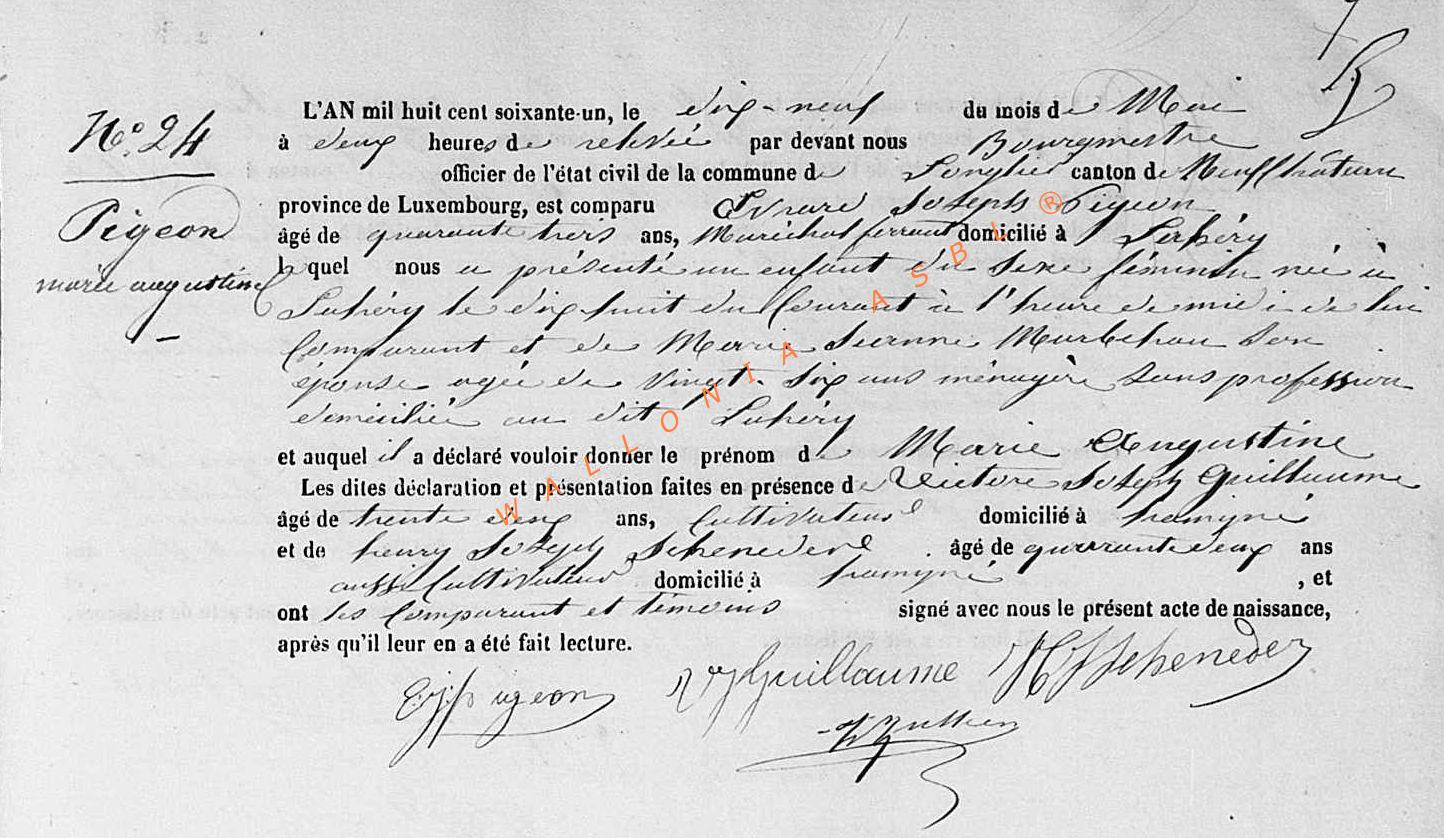 N.º 24
Pigeon
marie augustine
L'AN mil huit cent soixante-un, le dix-neuf du mois de Mai
à deux heures de relevée par devant nous Bourgmestre
officier de l'état civil de la commune de Longlier canton de Neufchâteau
province de Luxembourg, est comparu Evrard Joseph Pigeon
âgé de quarante trois ans, Maréchal ferrant domicilié à
lequel nous a présenté un enfant du sexe féminin née à
le dix huit du Courant à l'heure de midi de lui
Comparant et de Marie Jeanne son
épouse agée de vingt-six ans ménagère sans profession
domiciliée au dit
et auquel il a déclaré vouloir donner le prénom de Marie Augustine
Les dites déclaration et présentation faites en présence de Victore Joseph Guillaume
âgé de trente deux ans, Cultivateur domicilié à
et de henry Joseph Scheneder âgé de quarante deux ans
aussi Cultivateur domicilié à , et
ont les Comparant et témoins signé avec nous le présent acte de naissance,
après qu'il leur en a été fait lecture.
E.J. Pigeon VJ Guillaume HJ Scheneder
WALLONIA ASBL ®